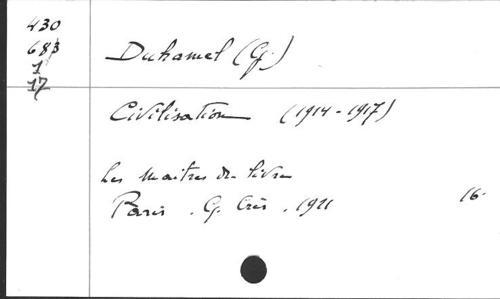 430
683
1
17
Duhamel (G.)
Civilisation (1914-1917)
Les Maitres du livre
Paris . G. Crès . 1921 16.